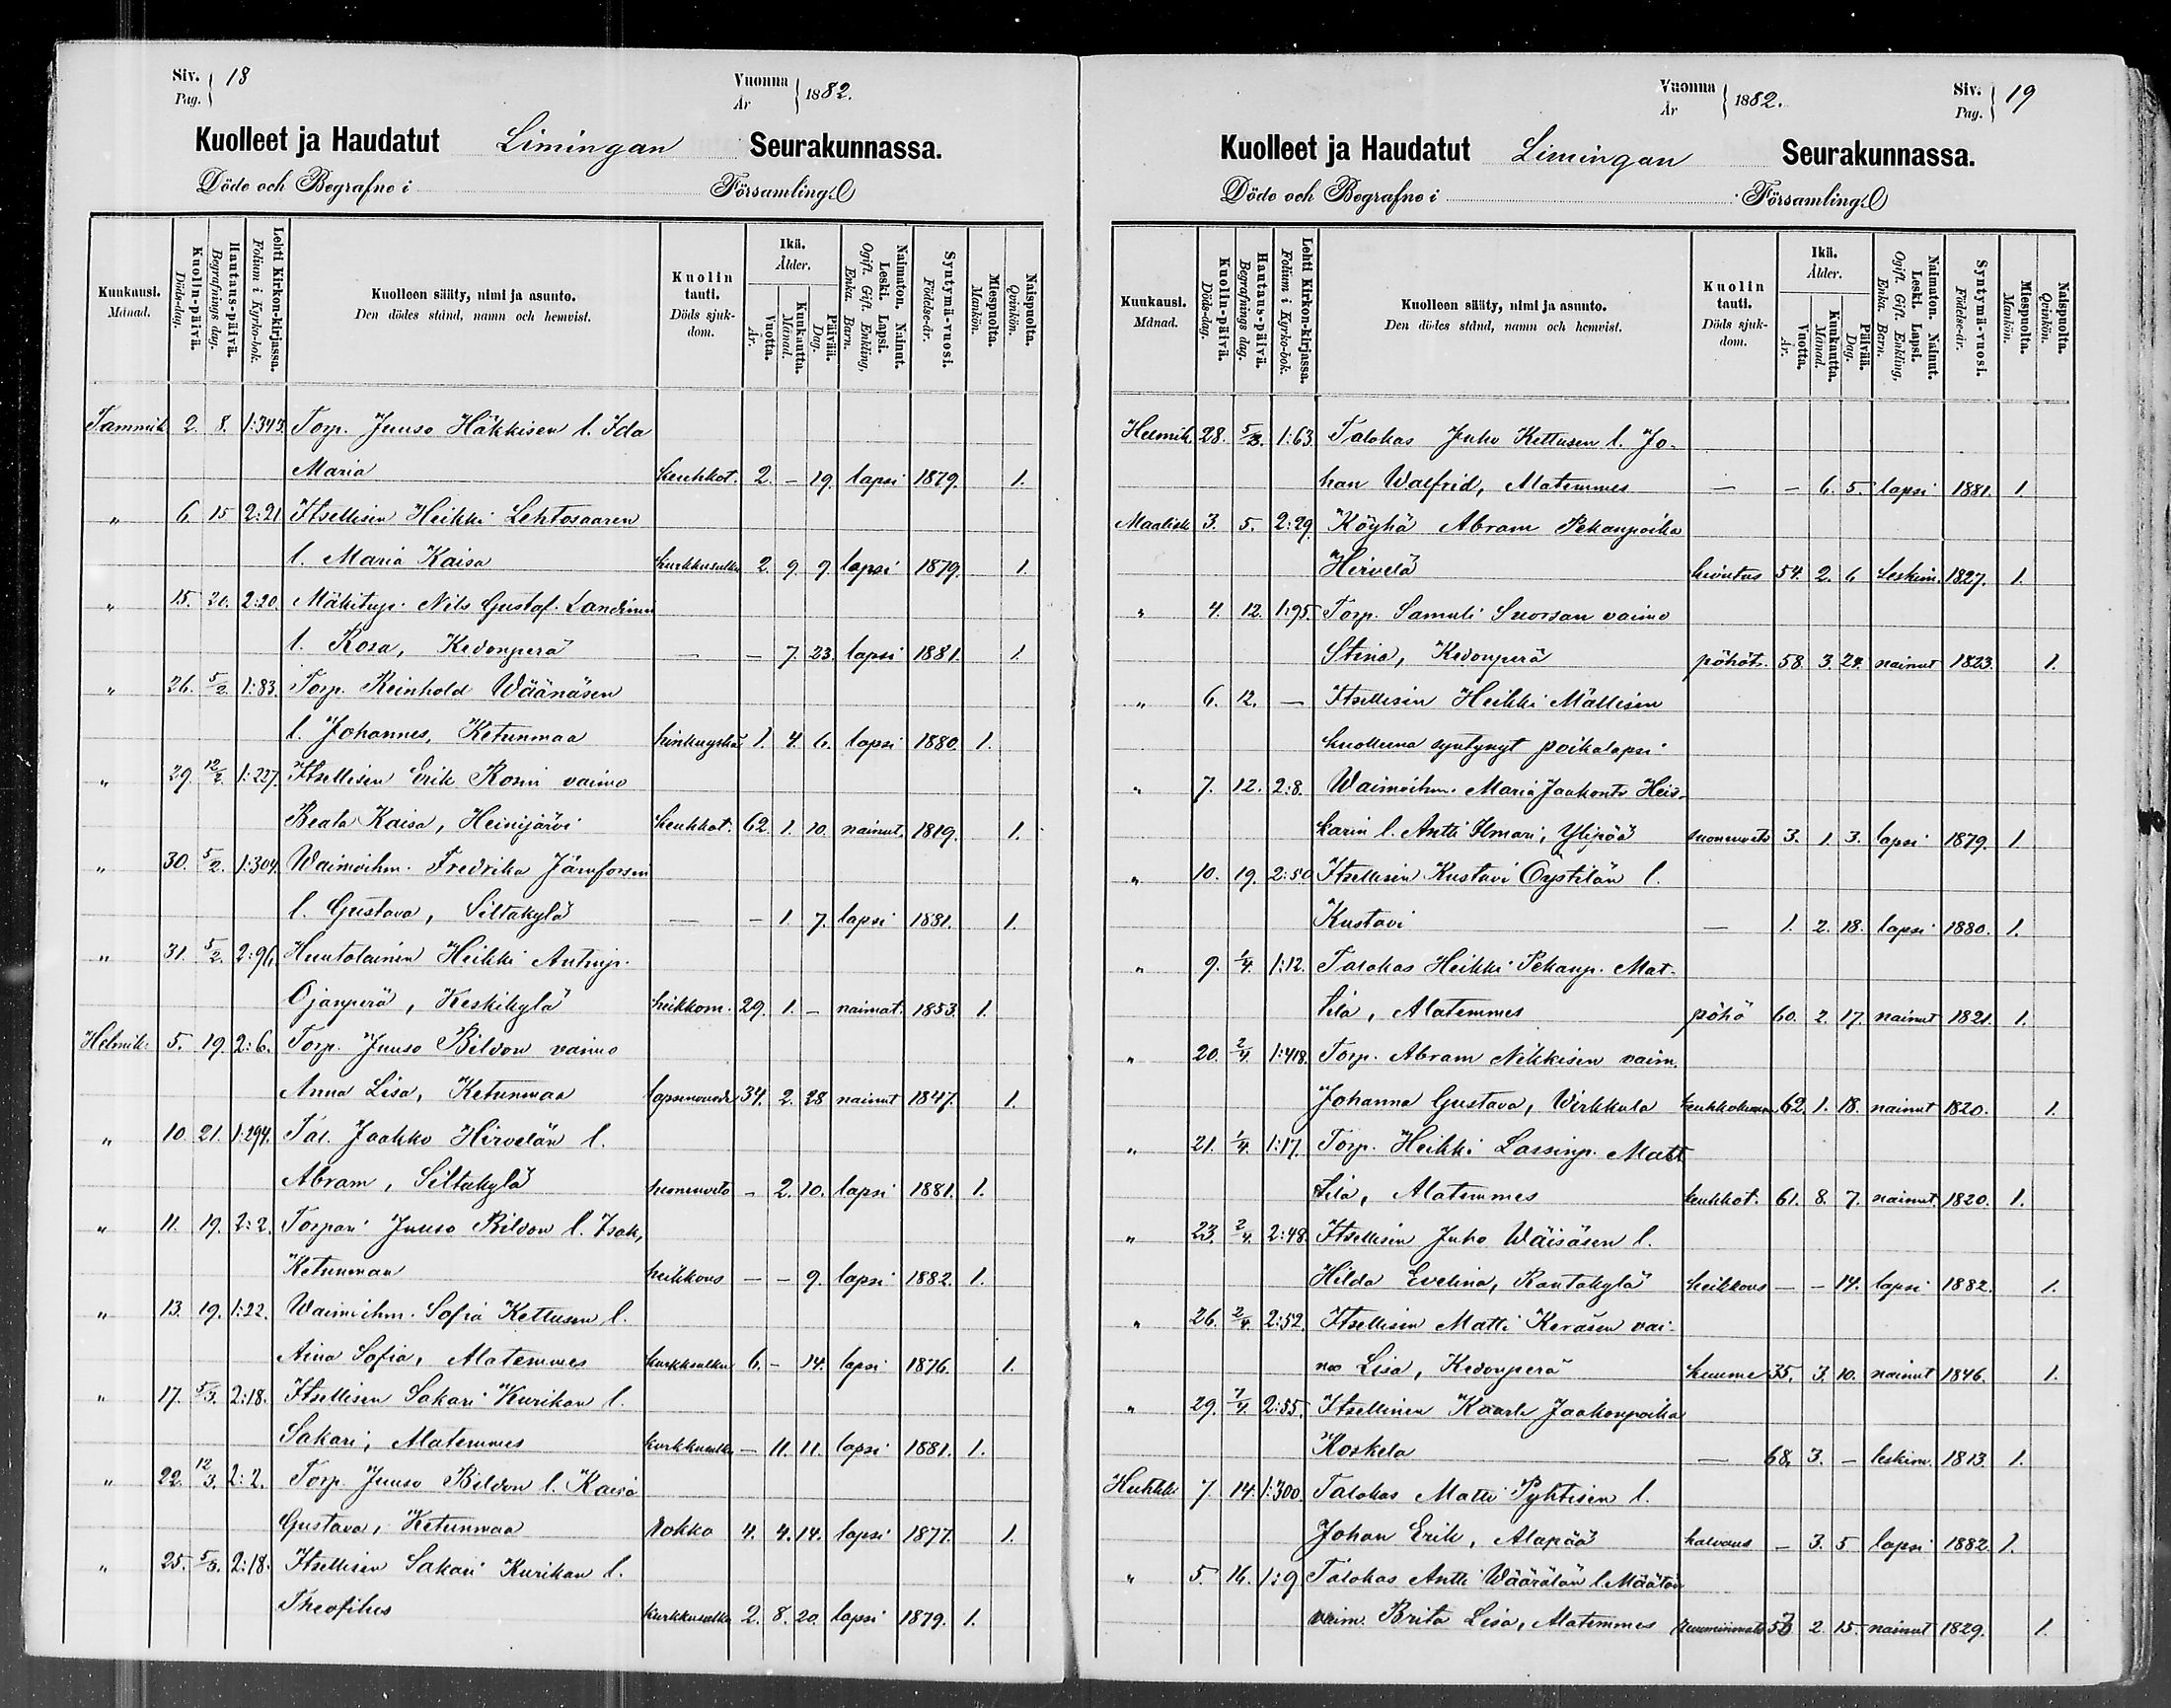 Siv. Pag. 18
Vuonna År 1882.
Kuolleet ja Haudatut Limingan Seurakunnassa.
Döde och Begrafne i Församling.
Kuukausi. Månad.
Kuolin-päivä. Döds-dag.
Hautaus-päivä. Begrafnings dag.
Lehti Kirkon-kirjassa. Folium i Kyrko-bok.
Kuolleen sääty, nimi ja asunto. Den dödes stånd, namn och hemvist.
Kuolin tauti. Döds sjukdom.
Ikä. Ålder.
Vuotta. År.
Kuukautta. Månad.
Päivää. Dag.
Naimaton. Nainut. Leski. Lapsi. Ogift. Gift. Enkling, Enka. Barn.
Syntymä-vuosi. Födelse-år.
Miespuolta. Mankön.
Naispuolta. Qvinkön.
Tammik 2. 8. 1:343. Torp. Juuso Häkkisen l. Ida
Maria keuhkot. 2. – 19. lapsi 1879. 1.
" 6. 15 2:21 Itsellisen Heikki Lehtosaaren
l. Maria Kaisa kurkkusulku 2. 9. 9. lapsi 1879. 1.
" 15. 20. 2:20. Mäkitup. Nils Gustaf
l. Rosa, Kedonperä — – 7. 23. lapsi 1881. 1.
" 26. 5/2. 1:83. Torp. Reinhold Wäänäsen
l. Johannes, Ketunmaa hinkuyskä 1. 4. 6. lapsi 1880. 1.
" 29. 12/2. 1:227. Itsellisen Erik Rosni vaimo
Beata Kaisa, Heinijärvi keuhkot. 62. 1. 10. nainut. 1819. 1.
" 30. 5/2. 1:304. Waimoihm. Fredrika Järnforsin
l. Gustava, Siltakylä — – 1. 7. lapsi 1881. 1.
" 31. 5/2. 2:96. Huutolainen Heikki Antinp.
Ojanperä, Keskikylä heikkom. 29. 1. – naimat. 1853. 1.
Helmik. 5. 19. 2:6. Torp. Juuso Bildon vaimo
Anna Lisa, Ketunmaa lapsenvuode 34. 2. 28 nainut 1847. 1.
" 10. 21. 1:294. Tal. Jaakko Hirvelän l.
Abram, Siltakylä suonenveto – 2. 10. lapsi 1881. 1.
" 11. 19. 2:2. Torpari Juuso Bildon l. Isak,
Ketunmaa heikkous – – 9. lapsi 1882. 1.
" 13. 19. 1:22. Waimoihm. Sofia Kettusen l.
Aina Sofia, Alatemmes kurkkusulku 6. – 14. lapsi 1876. 1.
" 17. 5/3. 2:18. Itsellisen Sakari Kurikan l.
Sakari, Alatemmes kurkkusulku – 11. 11. lapsi 1881. 1.
" 22. 12/3. 2:2. Torp. Juuso Bildon l. Kaisa
Gustava, Ketunmaa Rokko 4. 4. 14. lapsi 1877. 1.
" 25. 5/3. 2:18. Itsellisen Sakari Kurikan l.
Theofilus kurkkusulku 2. 8. 20. lapsi 1879. 1.
Vuonna År 1882.
Siv. Pag. 19
Kuolleet ja Haudatut Limingan Seurakunnassa.
Döde och Begrafne i Församling.
Kuukausi. Månad.
Kuolin-päivä. Döds-dag.
Hautaus-päivä. Begrafnings dag.
Lehti Kirkon-kirjassa. Folium i Kyrko-bok.
Kuolleen sääty, nimi ja asunto. Den dödes stånd, namn och hemvist.
Kuolin tauti. Döds sjukdom.
Ikä. Ålder.
Vuotta. År.
Kuukautta. Månad.
Päivää. Dag.
Naimaton. Nainut. Leski. Lapsi. Ogift. Gift. Enkling, Enka. Barn.
Syntymä-vuosi. Födelse-år.
Miespuolta. Mankön.
Naispuolta. Qvinkön.
Helmik. 28. 5/3. 1:63. Talokas Juho Kettusen l. Jo-
han Walfrid, Alatemmes — – 6. 5. lapsi 1881. 1.
Maalisk 3. 5. 2:29. Köyhä Abram Pekanpoika
Hirvelä kivutus 54. 2. 6 leskim. 1827. 1.
" 4. 12. 1:95. Torp. Samuli Suorsan vaimo
Stina, Kedonperä pöhöt. 58. 3. 24. nainut 1823. 1.
" 6. 12. — Itsellisen Heikki Mällisen
kuolleena syntynyt poikalapsi
" 7. 12. 2:8. Waimoihm. Maria Jaakontr Heis-
karin l. Antti Ilmari, Ylipää suonenveto 3. 1. 3. lapsi 1879. 1.
" 10. 19. 2:50 Itsellisen Kustavi Öystilän l.
Kustavi — 1. 2. 18. lapsi 1880. 1.
" 9. 1/4. 1:12. Talokas Heikki Pekanp. Mat-
tila, Alatemmes pöhö 60. 2. 17. nainut 1821. 1.
" 20. 2/4. 1:418. Torp. Abram Nikkisen vaim.
Johanna Gustava, Wirkkula 62. 1. 18. nainut 1820. 1.
" 21. 1/4. 1:17. Torp. Heikki Lassinp. Matt
tila, Alatemmes keuhkot. 61. 8. 7. nainut. 1820. 1.
" 23. 2/4. 2:48. Itsellisen Juho Wäisäsen l.
Hilda Evelina, Rantakylä heikkous – – 14. lapsi 1882. 1.
" 26. 2/4. 2:52. Itsellisen Matti Keräsen vai-
mo Lisa, Kedonperä kuume 35. 3. 10. nainut 1846. 1.
" 29. 7/4. 2:55. Itsellinen Kaarle Jaakonpoika
Koskela — 68. 3. – leskim. 1813 1.
Huhtik 7. 14. 1:300. Talokas Matti Pyhtisen l.
Johan Erik, Alapää halvaus – 3. 5 lapsi 1882. 1.
" 5. 16. 1:9 Talokas Antti Wäärälän l. Määtän
vaim. Brita Lisa, Alatemmes 2. 15. nainut 1829. 1.